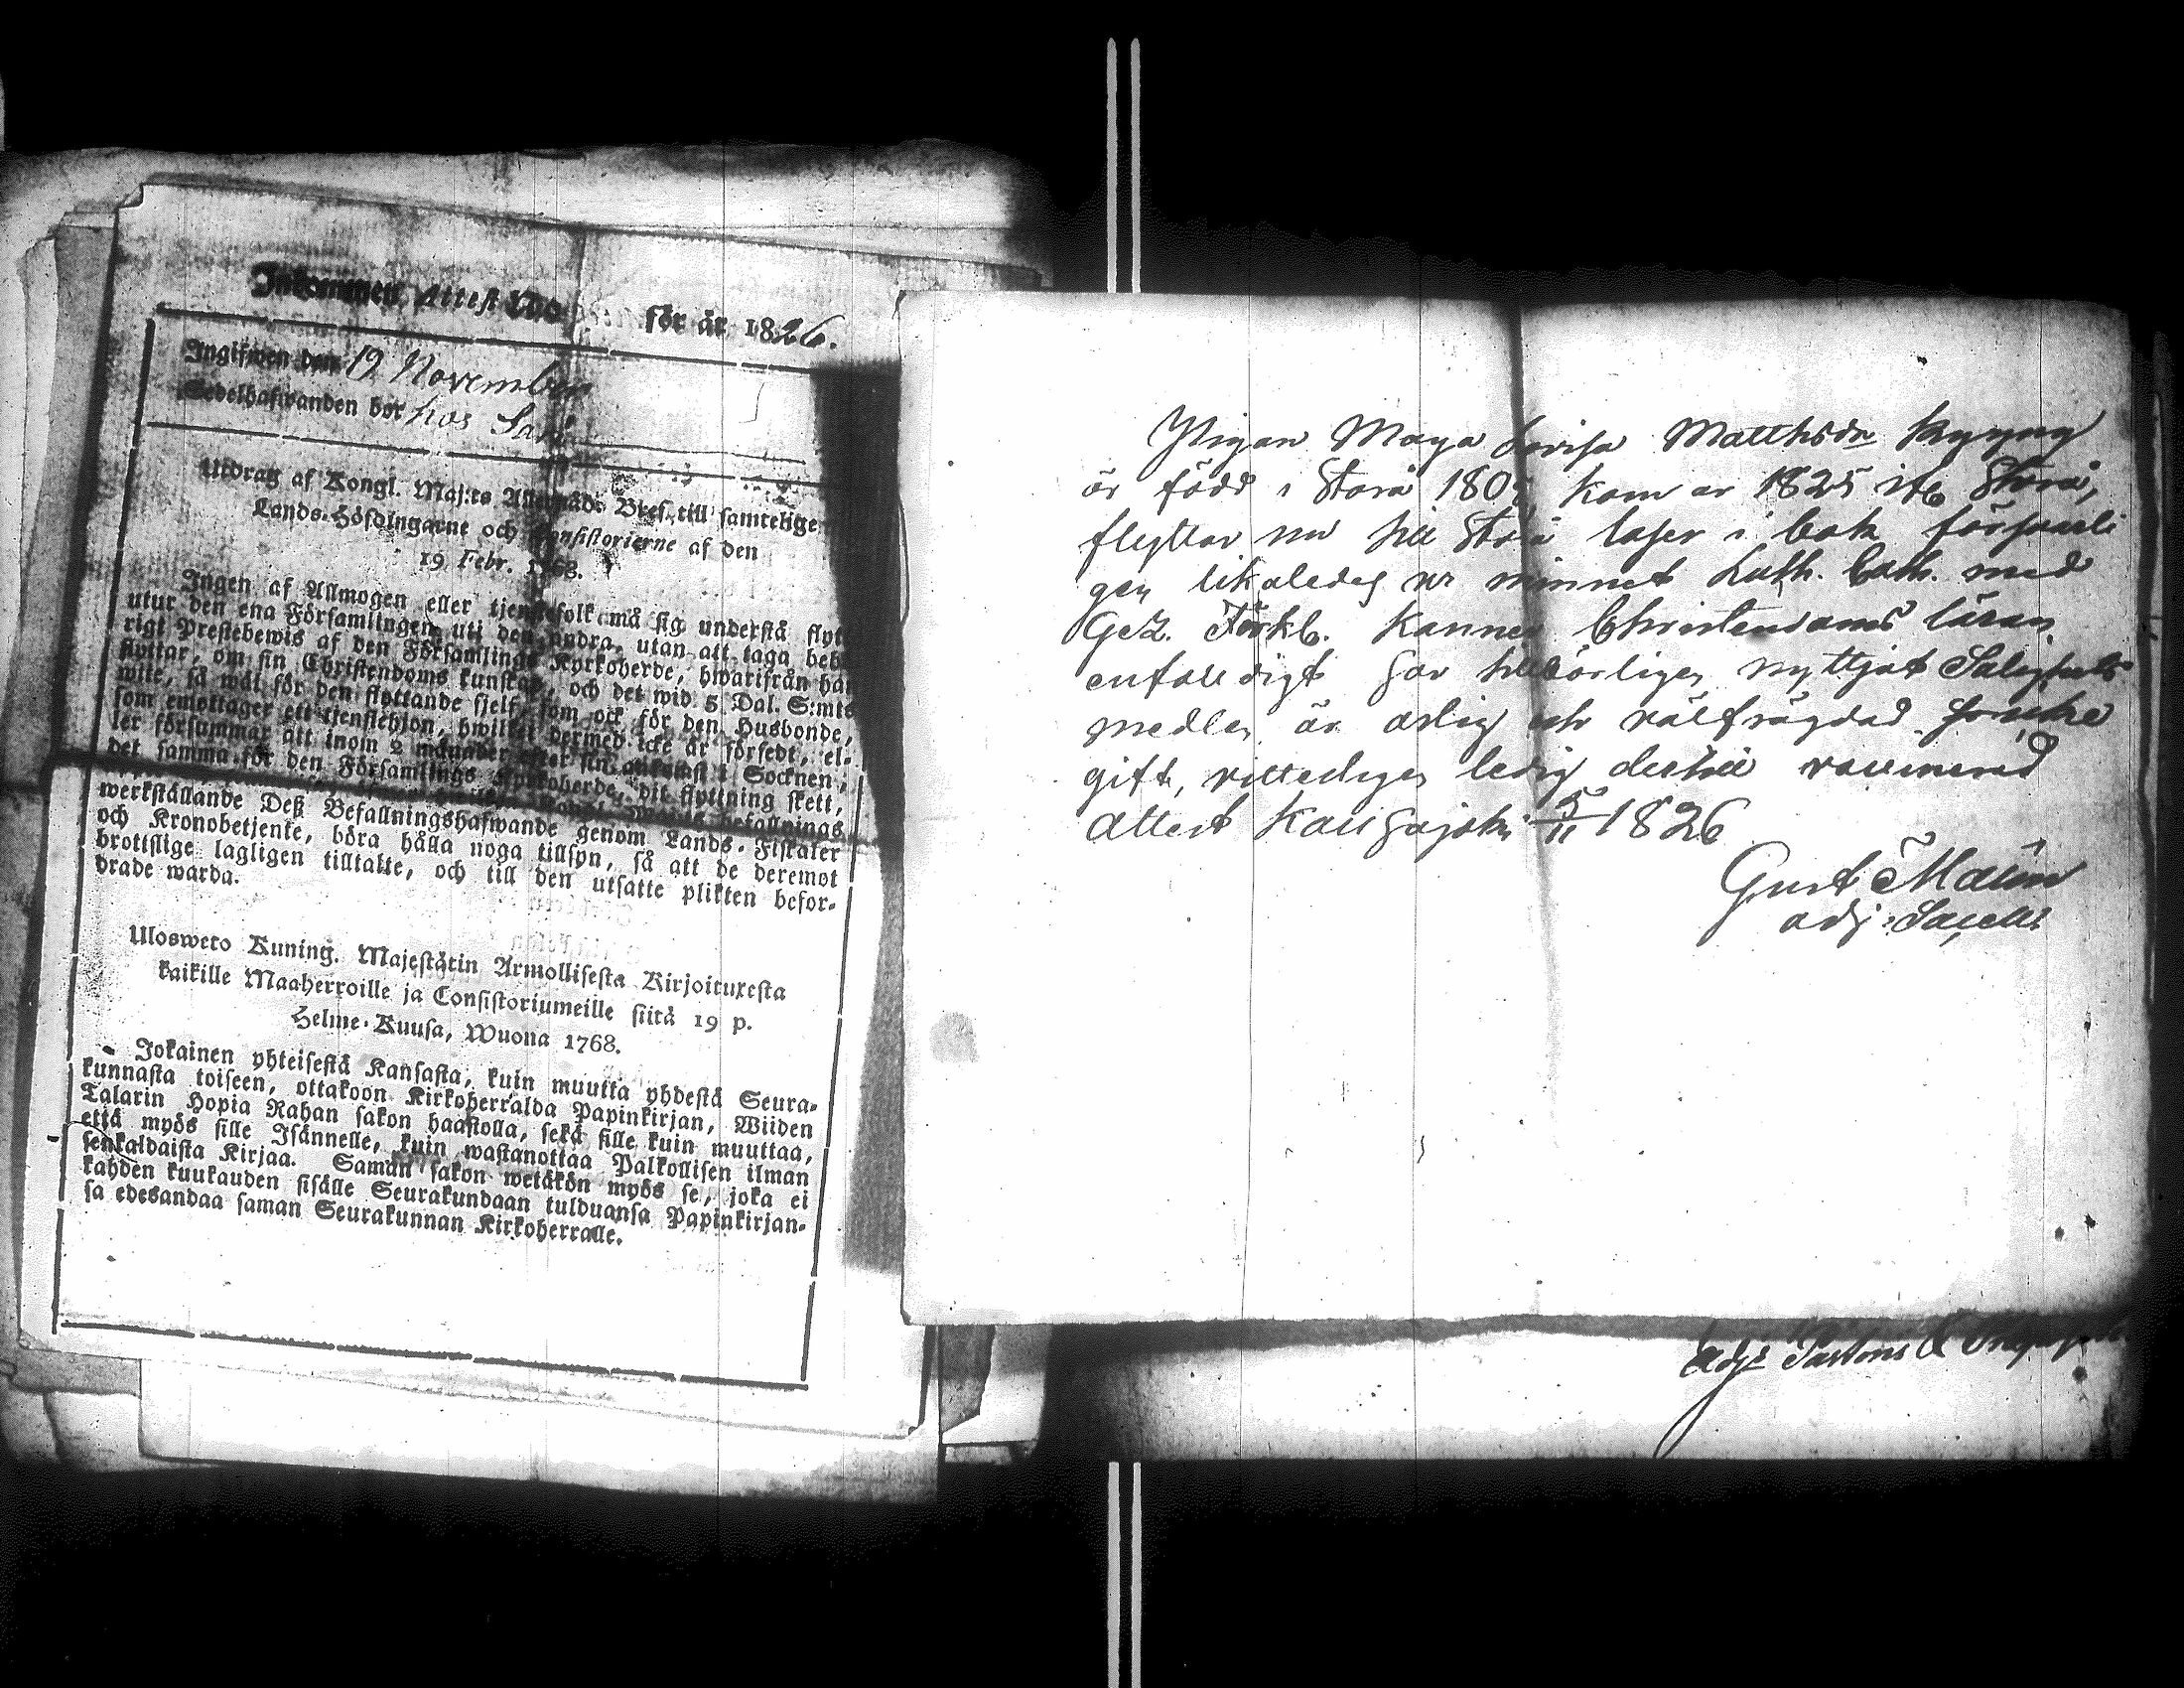 Inkommen Attest No för år 1826.
Ingifwen den 19 November
Sedelhafwanden bor hos
Utdrag af Kongl. Maj:ts Allernåd. Bref till samtelige
Lands-Höfdingarne och Consistorierne af den
19 Febr. 1768.
Ingen af Allmogen eller tjenstefolk må sig understå flyt-
utur den ena Församlingen uti den andra, utan att taga behö-
rigt Prestebewis af den Församlings Kyrkoherde, hwarifrån han
flyttar, om sin Christendoms kunskap, och det wid 5 Dal. S:mts
wite, så wäl för den flyttande sjelf, som ock för den Husbonde,
som emottager ett tjenstehjon, hwilket dermed icke är försedt, el-
ler försummar att inom 2 månader efter sin ankomst i Socknen,
det samma för den Församlings Kyrkoherde, dit flyttning skett,
befallnings
werkställande Deß Befallningshafwande genom Lands-Fiskaler
och Kronobetjente, böra hålla noga tillsyn, så att de deremot
brottslige lagligen tilltalte, och till den utsatte plikten befor-
drade warda.
Ulosweto Kuning. Majestätin Armollisesta Kirjoituxesta
kaikille Maaherroille ja Consistoriumeille siitä 19 p.
Helme-Kuusa, Wuona 1768.
Jokainen yhteisestä Kansasta, kuin muutta yhdestä Seura-
kunnasta toiseen, ottakoon Kirkoherralda Papinkirjan, Wiiden
Talarin Hopia Rahan sakon haastolla, sekä sille kuin muuttaa,
että myös sille Isännelle, kuin wastanottaa Palkollisen ilman
senkaldaista Kirjaa. Saman sakon wetäkön myös se, joka ei
kahden kuukauden sisälle Seurakundaan tulduansa Papinkirjan-
sa edesandaa saman Seurakunnan Kirkoherralle.
Pigan Maya Lovisa Matthsdr
är född i Storå kom år 1825 ifr Storå,
flyttar nu till Storå läser i bok försvarli
gen likaledes ur minnet Luth. Cath. med
Gez. Förkl. Känner Christendoms läran
enfaldigt har tillbörligen nyttjat Salighets
medlen är ärlig och välfrägdad
gift, vitterligen ledig
attest Kauhajoki 5/11 1826
Gust Malm
adj. Sacell
Adj: Pastoris &